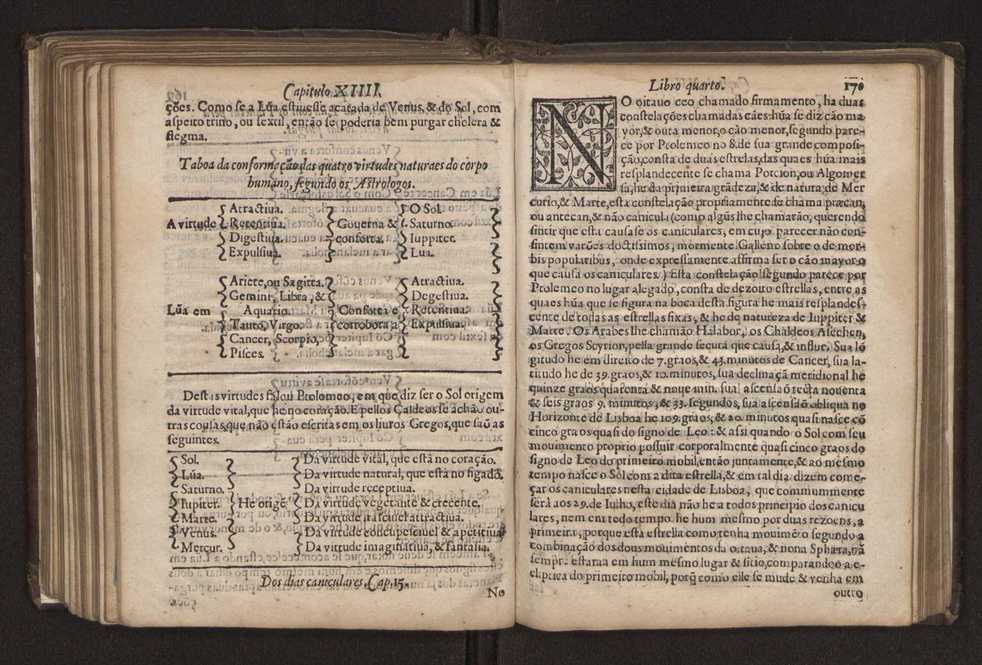 Capitulo XIIII.
ções. Como se a Lũa estiuesse acatada de Venus, & do Sol, com
aspeito trino, ou sextil, então se poderia bem purgar cholera &
flegma.
Taboa da conformação das quatro virtudes naturaes do corpo
humano, segundo os Astrologos.
A virtude
Atractiua.
Retentiua.
Digestiua.
Expulsiua.
Gouerna &
conforta.
O Sol.
Saturno.
Iuppiter.
Lua.
Lũa em
Ariete, ou Sagitta.
Gemini, Libra, &
Aquario.
Tauro, Virgo.
Cancer, Scorpio, &
Pisces.
Conforta e
corrobora a
Atractiua.
Degestiua.
Retentiua.
Expulsiua.
Destas virtudes falou Ptolomeo, em que diz ser o Sol origem
da virtude vital, que he no coração. E pellos Caldeos se achão ou-
tras cousas, que não estão escritas em os liuros Gregos, que saũ as
seguintes.
Sol.
Lũa.
Saturno.
Iupiter.
Marte.
Venus.
Mercur.
He origẽ
Da virtude vital, que està no coração.
Da virtude natural, que està no figado.
Da virtude receptiua.
Da virtude vegetante & crecente.
Da virtude irasciuel attractiua.
Da virtude concupisciuel & apetitiua
Da virtude imaginatiua, & fantasia.
Dos dias caniculares. Cap. 15.
No
Libro quarto. 170
NO oitauo ceo chamado firmamento, ha duas
constelações chamadas cães: hũa se diz cão ma
yòr, & outa menor, o cão menor, segundo pare-
ce por Ptolemeo no 8. de sua grande composi-
ção, consta de duas estrelas, das quaes hũa mais
resplandecente se chama Porcion, ou Algomey
sa, he da primeira grãdeza, & de natura de Mer
curio, & Marte, esta constelação propriamente se chama præcan,
ou antecan, & não canicula (como algũs lhe chamarão, querendo
sintir que esta causasse os caniculares, em cujo parecer não con-
sintem varões doctissimos, mormente Galleno sobre o de mor-
bis popularibus, onde expressamente affirma ser o cão mayor o
que causa os caniculares.) Esta constelação segundo parece por
Ptolemeo no lugar alegado, consta de dezouto estrellas, entre as
quaes hũa que se figura na boca desta figura he mais resplandes-
cente de todas as estrellas fixas, & he de natureza de Iuppiter &
Marte. Os Arabes lhe chamão Halabor, os Chaldeos Asechen,
os Gregos Seyrion, pella grande secura que causa, & influe. Sua lõ
gitudo he em direito de 7. graos, & 43. minutos de Cancer, sua la-
titudo he de 39. graos, & 10. minutos, sua declinaçã meridional he
quinze graos quarenta & noue min. sua ascensaõ recta nouenta
& seis graos 9. minutos, & 33. segundos, sua ascensaõ obliqua no
Horizonte de Lisboa he 109. graos, & 20. minutos quasi nasce cõ
cinco graos quasi do signo de Leo: & assi quando o Sol com seu
mouimento proprio possuir corporalmente quasi cinco graos do
signo de Leo do primeiro mobil, então juntamente, & ao mesmo
tempo nasce o Sol com a dita estrella, & em tal dia dizem come-
çar os caniculares nesta cidade de Lisboa, que commummente
serà aos 29. de Iulho, este dia não he a todos principio dos canicu
lares, nem em todo tempo he hum mesmo por duas rezoẽs, a
primeira, porque esta estrella como tenha mouimẽto segundo a
combinação dos dous mouimentos da octaua, & nona Sphæra, nã
sempre estaria em hum mesmo lugar & sitio, comparando o a e-
cliptica do primeiro mobil, porq̃ como elle se mude & venha em
outro